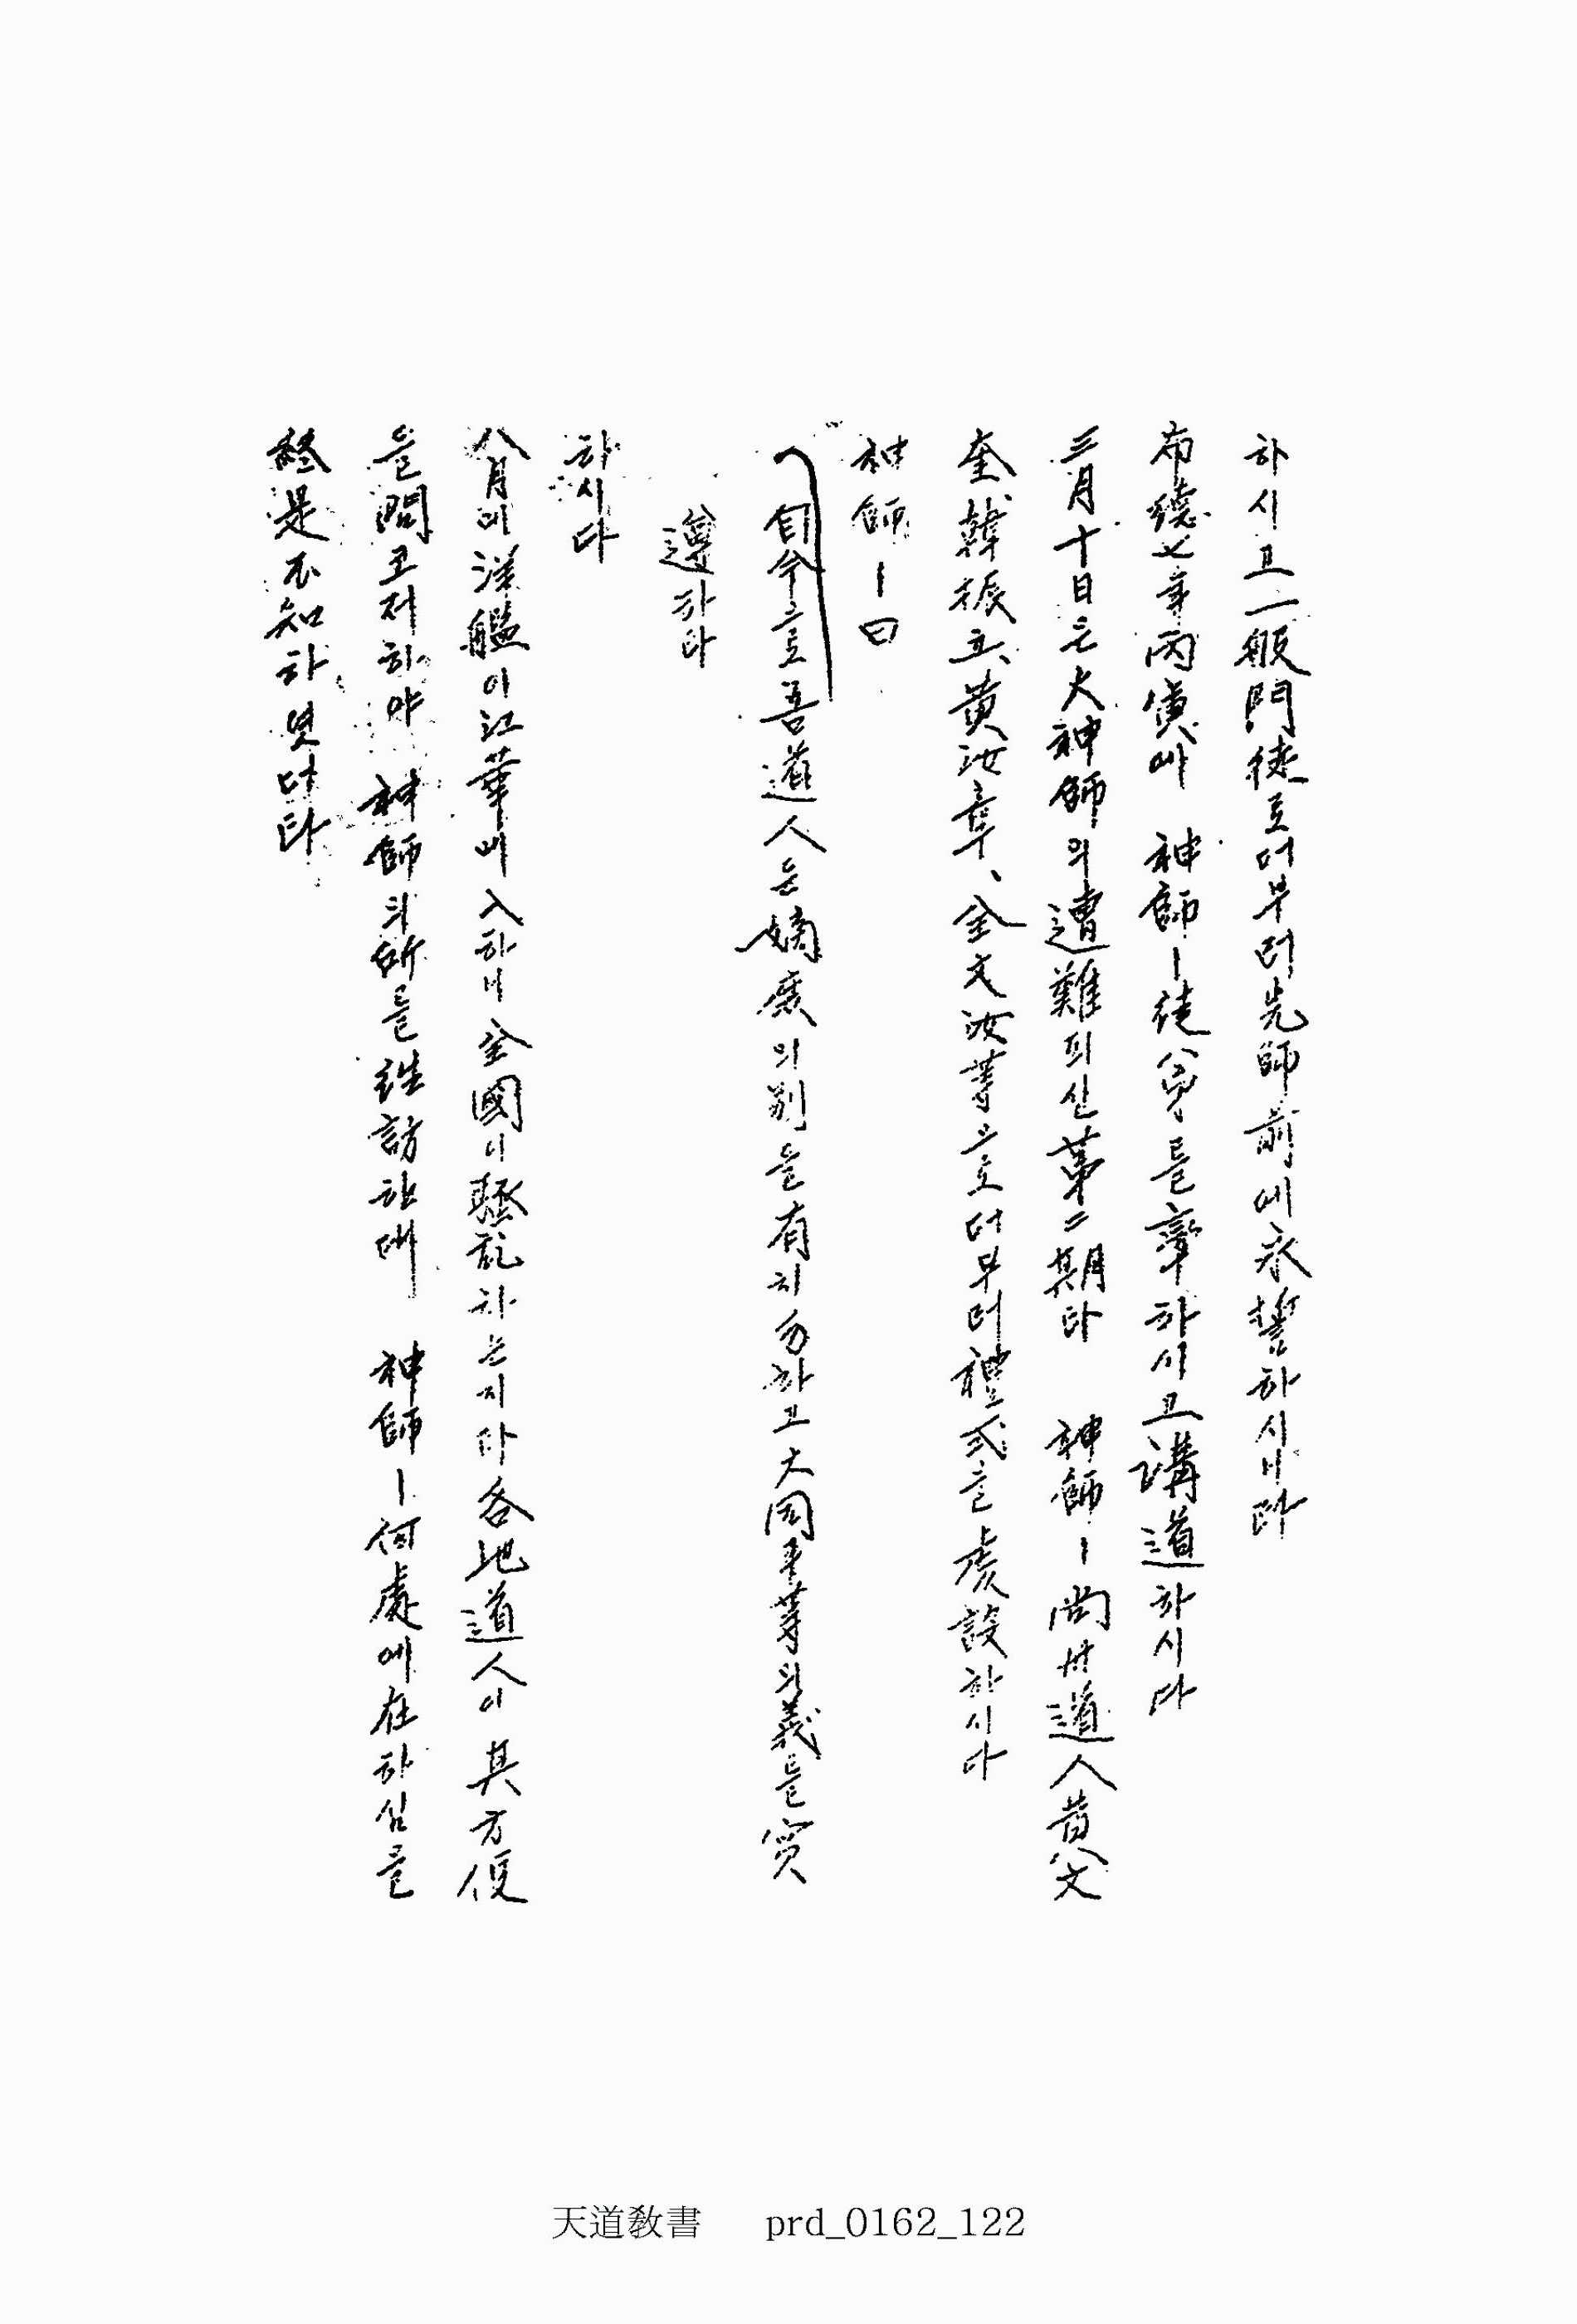 하시고一般門徒로더부러先師前에永誓하시니라
布德七年丙寅에 神師ㅣ徒弟를率하시고講道하시다
三月十日은大神師의遭難되신第二期라 神師ㅣ尙州道人黃文
奎、韓振五、黃汝章、全文汝等으로더부러禮式을虔設하시다
神師ㅣ曰
自今으로吾道人은嫡庶의別을有치勿하고大同平等의義를實
遵하라
하시다
八月에洋艦이江華에入하니全國이騷乱하는지라各地道人이其方便
을問코저하야 神師의所를 訪한대 神師ㅣ何處에在하심을
終是不知하엿더라
天道敎書 prd_0162_122